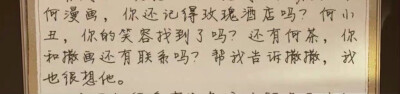 何漫画，你还记得玫瑰酒店吗？何小
丑，你的笑容找到了吗？还有何茶，你
和撒画还有联系吗？帮我告诉撒撒，我
也很想他。